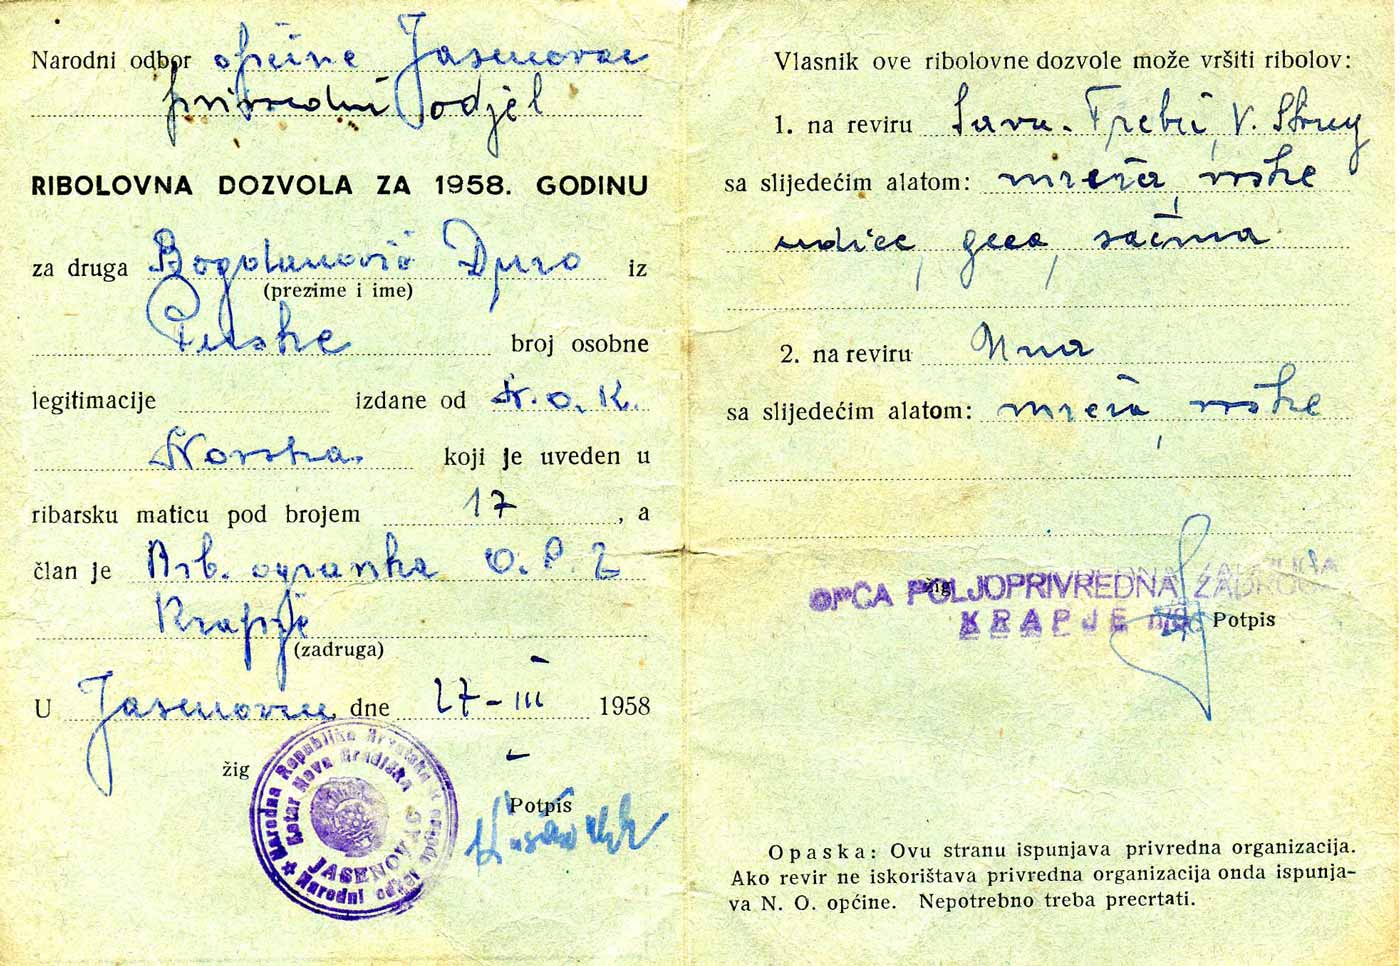 Narodni odbor općine Jasenovac
privredni odjel
RIBOLOVNA DOZVOLA ZA 1958. GODINU
za druga Bogdanović Đuro iz
(prezime i ime)
Puske broj osobne
legitimacije izdane od N.O.K.
Novska koji je uveden u
ribarsku maticu pod brojem 17, a
član je Rib. ogranka O.P.Z
Krapje
(zadruga)
U Jasenovcu, dne 27-III 1958
žig
Potpis
Narodna Republika Hrvatska
Kotar Nova Gradiška
JASENOVAC
Narodni odbor
Vlasnik ove ribolovne dozvole može vršiti ribolov:
1. na reviru Sava. Trebež, V. Strug
sa slijedećim alatom: mreža, vrške
udice, sačma
2. na reviru Una
sa slijedećim alatom: mreža, vrške
OPĆA POLJOPRIVREDNA ZADRUGA
žig
KRAPJE
Potpis
Opaska: Ovu stranu ispunjava privredna organizacija.
Ako revir ne iskorištava privredna organizacija onda ispunja-
va N. O. općine. Nepotrebno treba precrtati.